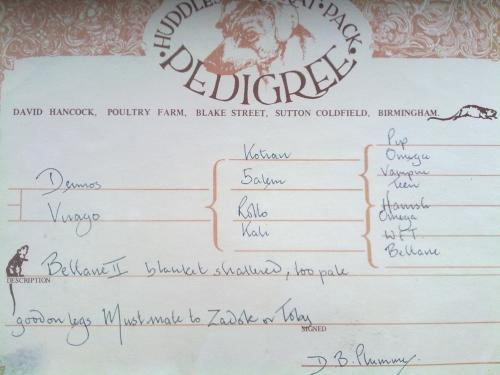 HUDDLES RAT · PACK ·
PEDIGREE
DAVID HANCOCK, POULTRY FARM, BLAKE STREET, SUTTON COLDFIELD, BIRMINGHAM.
Pip
Kotian
Omega
Vampire
Deimos
Salem
Teen
Virago
Rollo
Hamish
Omega
Kali
WFT
Bellane
Bellane II blanket shattered, too pale
DESCRIPTION
good on legs Must mate to Zadok or Toby
SIGNED
D. B. Plummer.